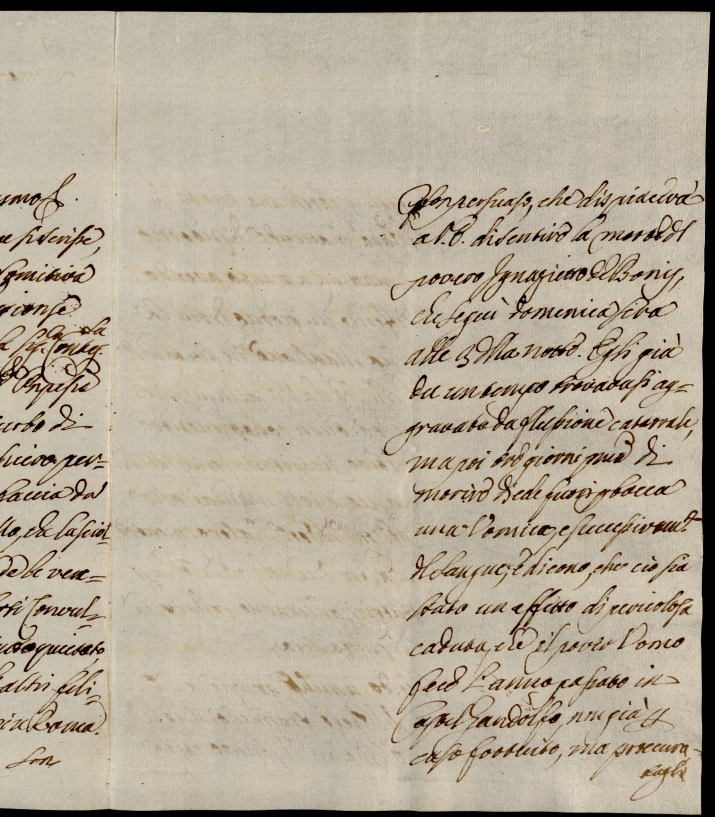 ue si scrisse,
comitiva
la Sig.ra Contes.sa
di
per-
faccia da
lo, che lasciò
debi vea-
Convul-
quietato
altri feli-
in Roma.
Son persuaso, che dispiacerà
a V.E. di sentire la morte del
povero Ignazietto de Bonis,
che seguì domenica sera
alle 5 della notte. Egli già
da un tempo trovavasi ag-
gravato da flussione catarrale,
ma poi tre giorni prima di
morire diede fuori p bocca
una Vomica, e successivam.te
del sangue, e dicono, che ciò sia
stato un effetto di pericolosa
caduta, che il povero Uomo
fece l'anno passato in
Castel Gandolfo, non già p
caso fortuito, ma procura-
tagli